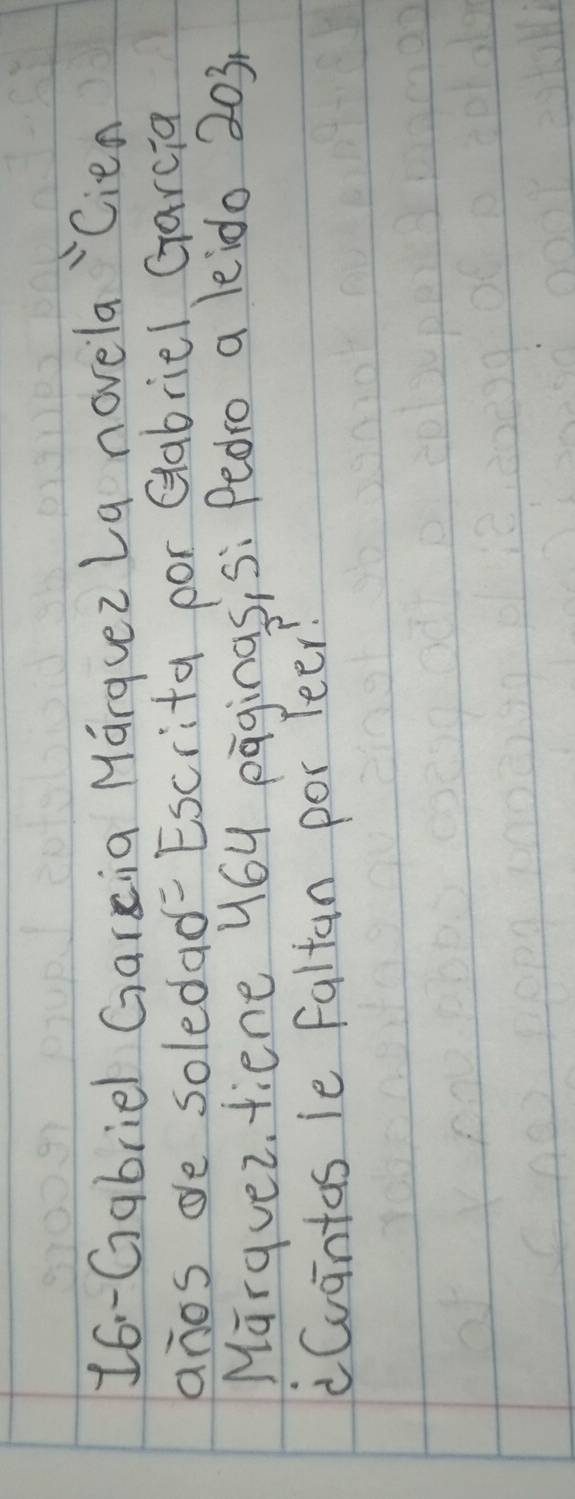 16.-Gabriel García Márquez La novela "Cien
años de soledad" Escrita por Gabriel García
Márquez, tiene 464 páginas, si Pedro a leido 203,
¿Cuántas le faltan por leer?